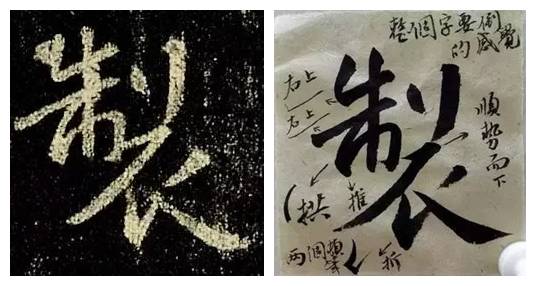 製
整個字要倒
的感覺
製
右上
右上
順勢而下
拱
推
两個
折